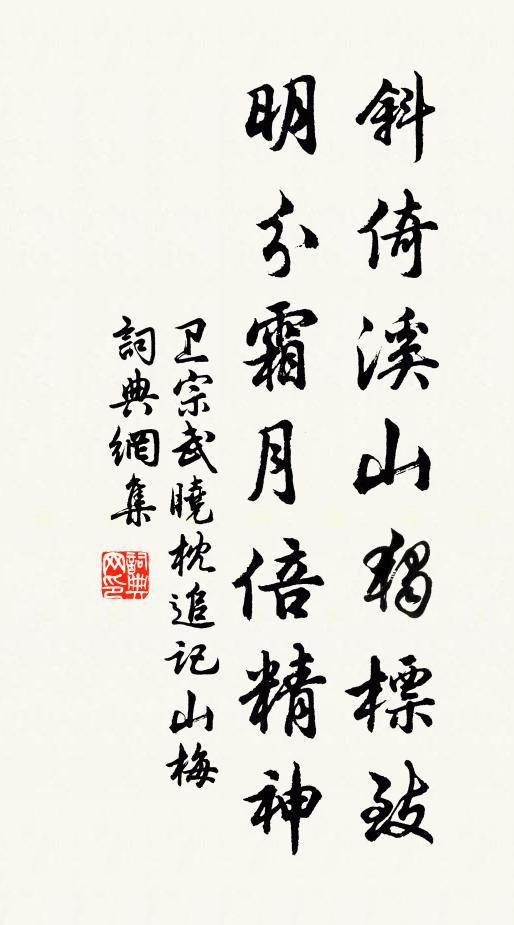 斜倚溪山独標致
明分霜月倍精神
卫宗武曉枕追记山梅
詞典網集
詞典網印